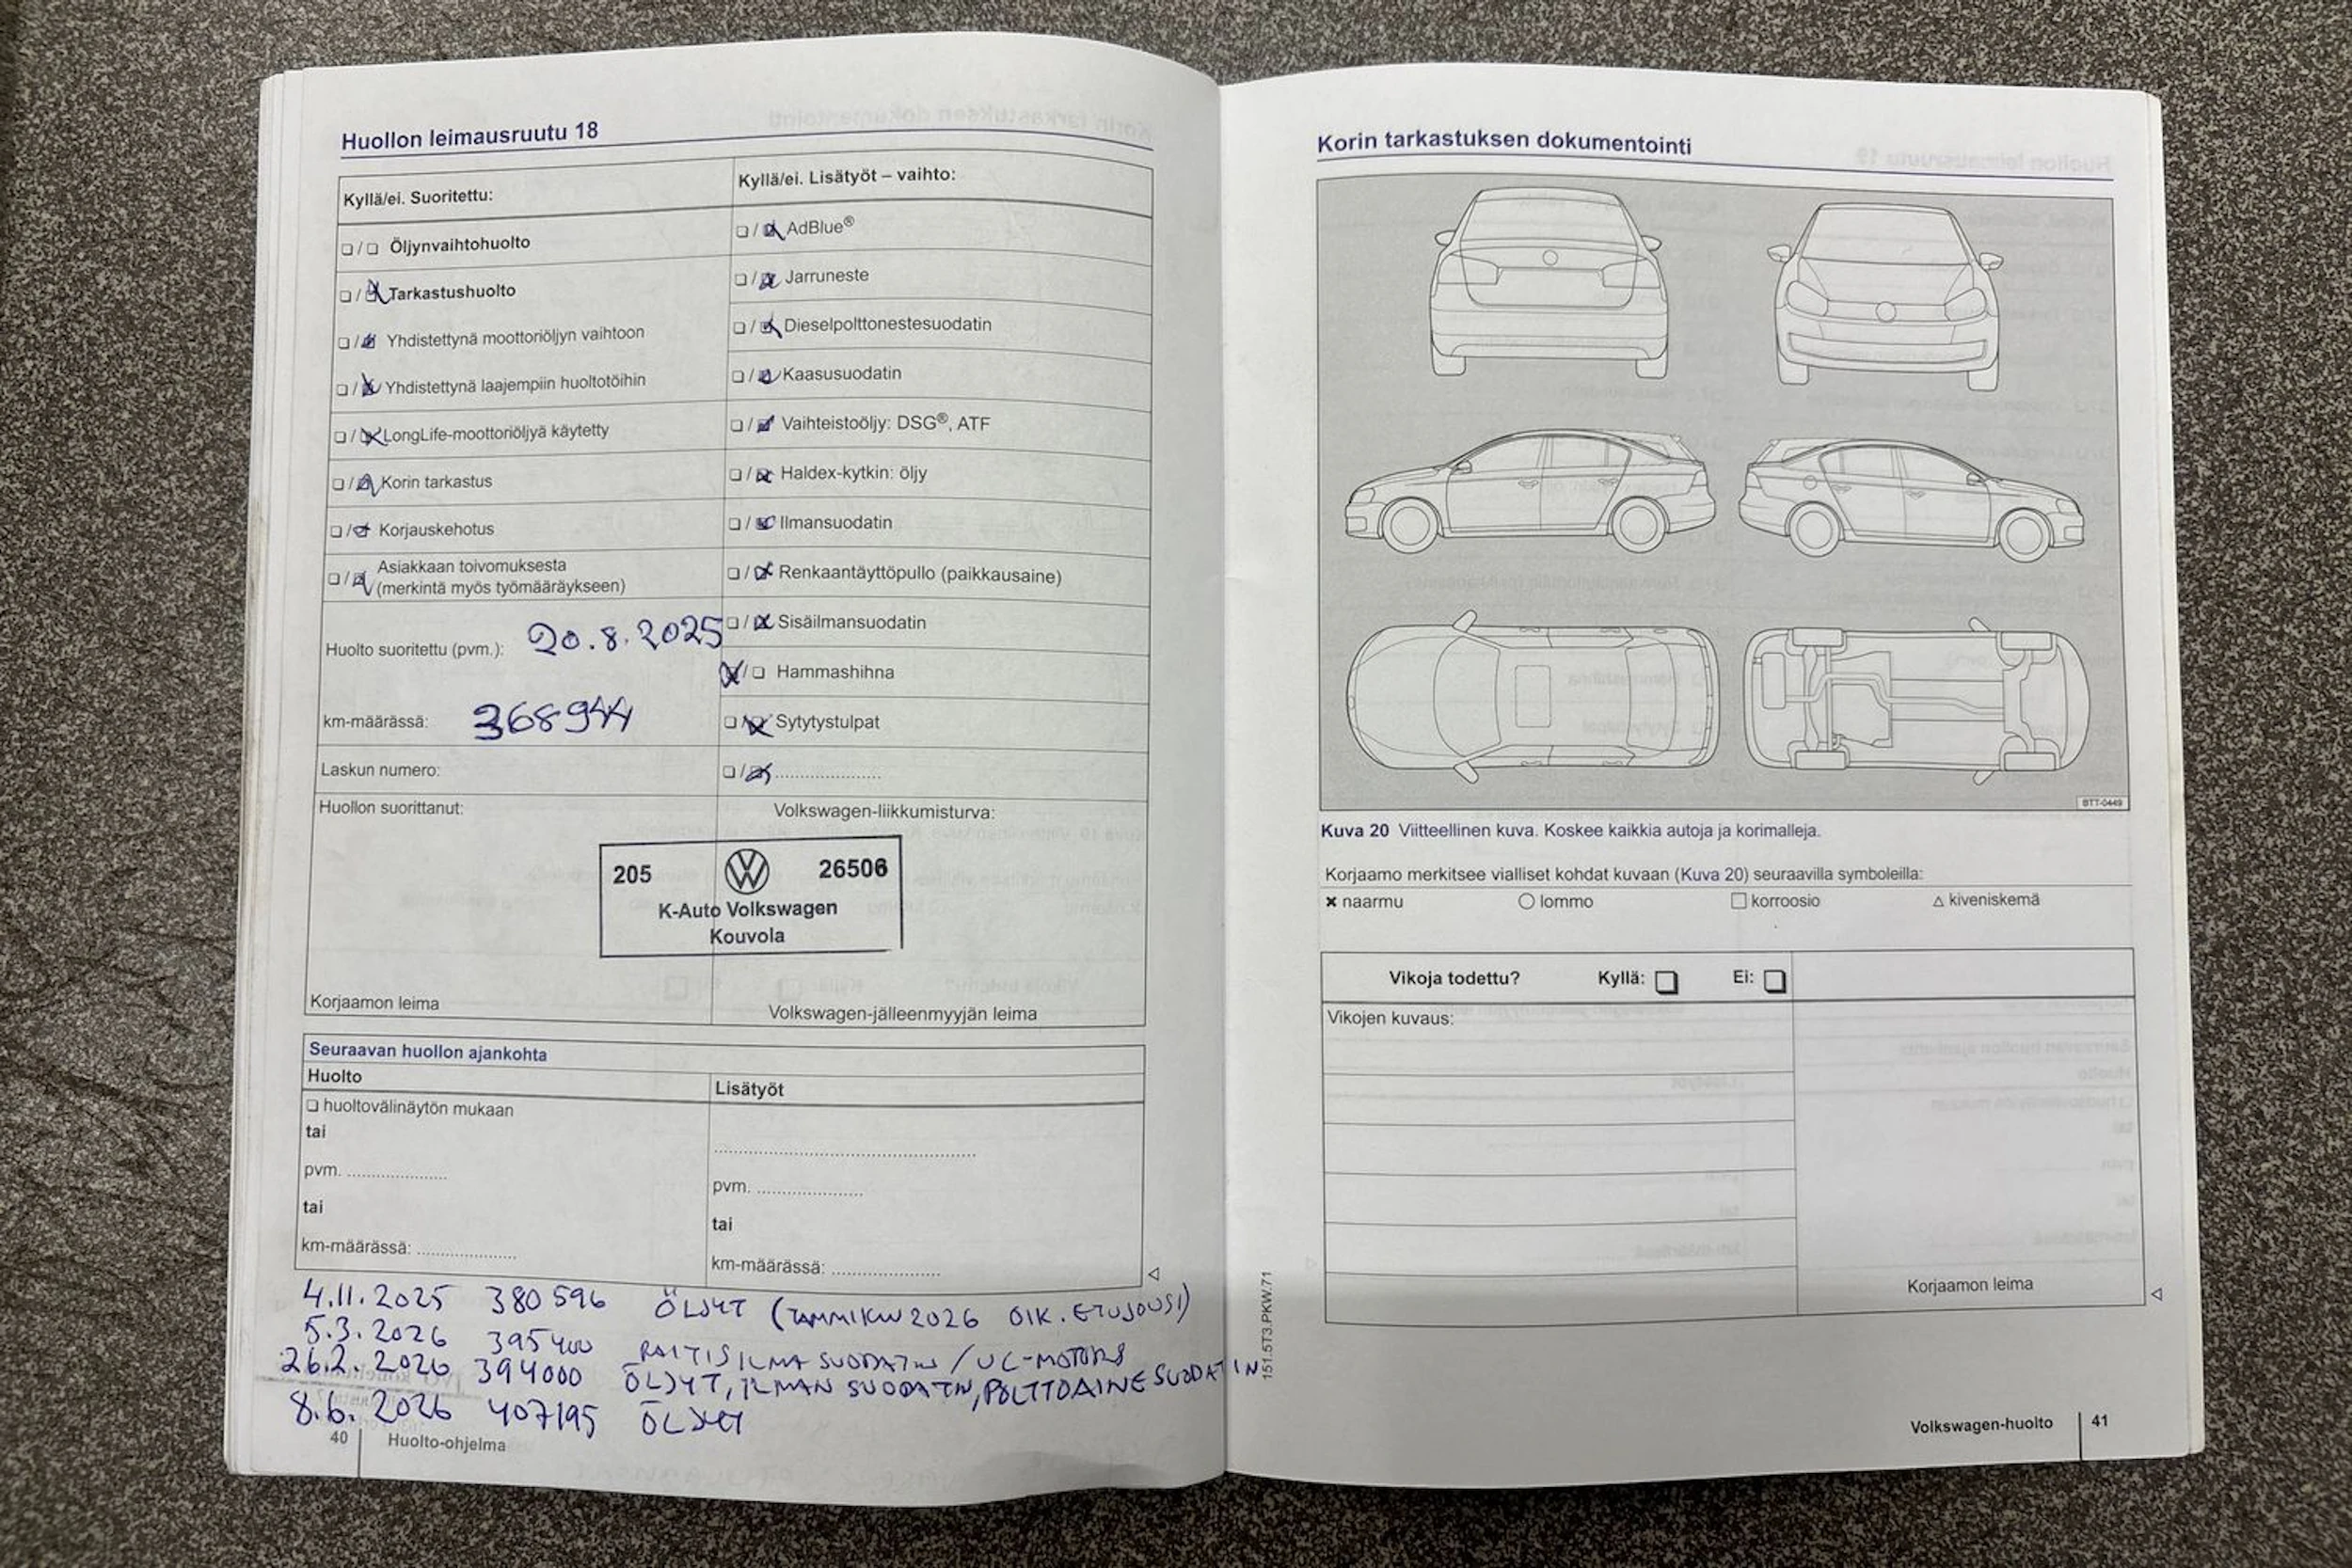 Huollon leimausruutu 18
Kyllä/ei. Suoritettu:
❏ / ❏ Öljynvaihtohuolto
❏ / ☒ Tarkastushuolto
❏ / ☒ Yhdistettynä moottoriöljyn vaihtoon
❏ / ☒ Yhdistettynä laajempiin huoltotöihin
❏ / ☒ LongLife-moottoriöljyä käytetty
❏ / ☒ Korin tarkastus
❏ / ☒ Korjauskehotus
❏ / ☒ Asiakkaan toivomuksesta
(merkintä myös työmääräykseen)
Huolto suoritettu (pvm.): 20.8.2025
km-määrässä: 368944
Laskun numero:
Huollon suorittanut:
Korjaamon leima
Kyllä/ei. Lisätyöt – vaihto:
❏ / ☒ AdBlue®
❏ / ☒ Jarruneste
❏ / ☒ Dieselpolttonestesuodatin
❏ / ☒ Kaasusuodatin
❏ / ☒ Vaihteistoöljy: DSG®, ATF
❏ / ☒ Haldex-kytkin: öljy
❏ / ☒ Ilmansuodatin
❏ / ☒ Renkaantäyttöpullo (paikkausaine)
❏ / ☒ Sisäilmansuodatin
☒ / ❏ Hammashihna
❏ / ☒ Sytytystulpat
❏ / ☒ ......................
Volkswagen-liikkumisturva:
205 26506
K-Auto Volkswagen
Kouvola
Volkswagen-jälleenmyyjän leima
Seuraavan huollon ajankohta
Huolto
❏ huoltovälinäytön mukaan
tai
pvm. ....................
tai
km-määrässä: ....................
Lisätyöt
..................................................
pvm. ....................
tai
km-määrässä: ....................
4.11.2025 380596 ÖLJYT (TAMMIKUU 2026 OIK. ETUJOUSI)
5.3.2026 395400 RAITISILMA SUODATIN / UC-MOTORS
26.2.2026 394000 ÖLJYT, ILMAN SUODATIN, POLTTOAINESUODATIN
8.6.2026 407195 ÖLJYT
40 Huolto-ohjelma
Korin tarkastuksen dokumentointi
BTT-0449
Kuva 20 Viitteellinen kuva. Koskee kaikkia autoja ja korimalleja.
Korjaamo merkitsee vialliset kohdat kuvaan (Kuva 20) seuraavilla symboleilla:
✖ naarmu ○ lommo □ korroosio △ kiveniskemä
Vikoja todettu? Kyllä: ❏ Ei: ❏
Vikojen kuvaus:
Korjaamon leima
151.5T3.PKW.71
Volkswagen-huolto 41